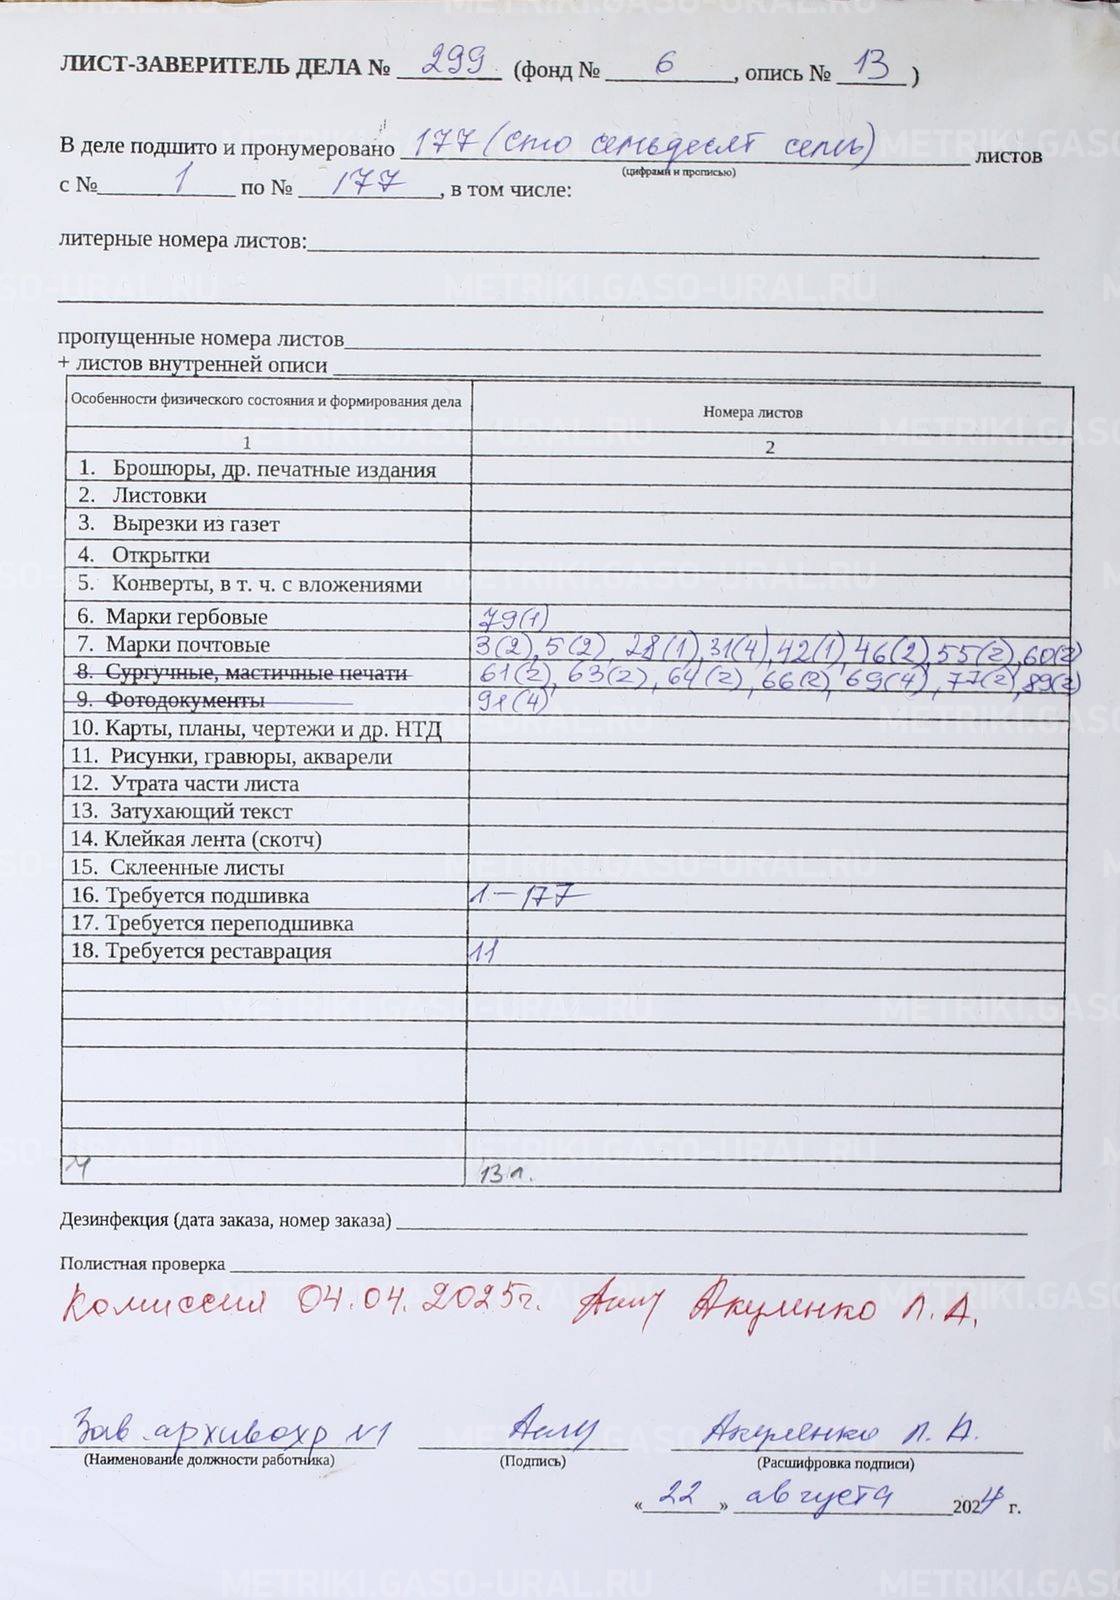 ЛИСТ-ЗАВЕРИТЕЛЬ ДЕЛА № 299 (фонд № 6, опись № 13)
В деле подшито и пронумеровано 177 (сто семьдесят семь) листов
(цифрами и прописью)
с № 1 по № 177, в том числе:
литерные номера листов:
пропущенные номера листов
+ листов внутренней описи
Особенности физического состояния и формирования дела Номера листов
1 2
1. Брошюры, др. печатные издания
2. Листовки
3. Вырезки из газет
4. Открытки
5. Конверты, в т. ч. с вложениями
6. Марки гербовые 79(1)
7. Марки почтовые 3(2), 5(2), 28(1), 31(4), 42(1), 46(2), 55(2), 60(2)
8. Сургучные, мастичные печати 61(2), 63(2), 64(2), 66(2), 69(4), 77(2), 89(2)
9. Фотодокументы 91(4)
10. Карты, планы, чертежи и др. НТД
11. Рисунки, гравюры, акварели
12. Утрата части листа
13. Затухающий текст
14. Клейкая лента (скотч)
15. Склеенные листы
16. Требуется подшивка 1-177
17. Требуется переподшивка
18. Требуется реставрация 11
13 л.
Дезинфекция (дата заказа, номер заказа)
Полистная проверка
Комиссия 04.04.2025г. Акуленко Л.А.
Зав. архивохр N1 Акуленко Л.А.
(Наименование должности работника) (Подпись) (Расшифровка подписи)
«22» августа 2024 г.
METRIKI.GASO-URAL.RU